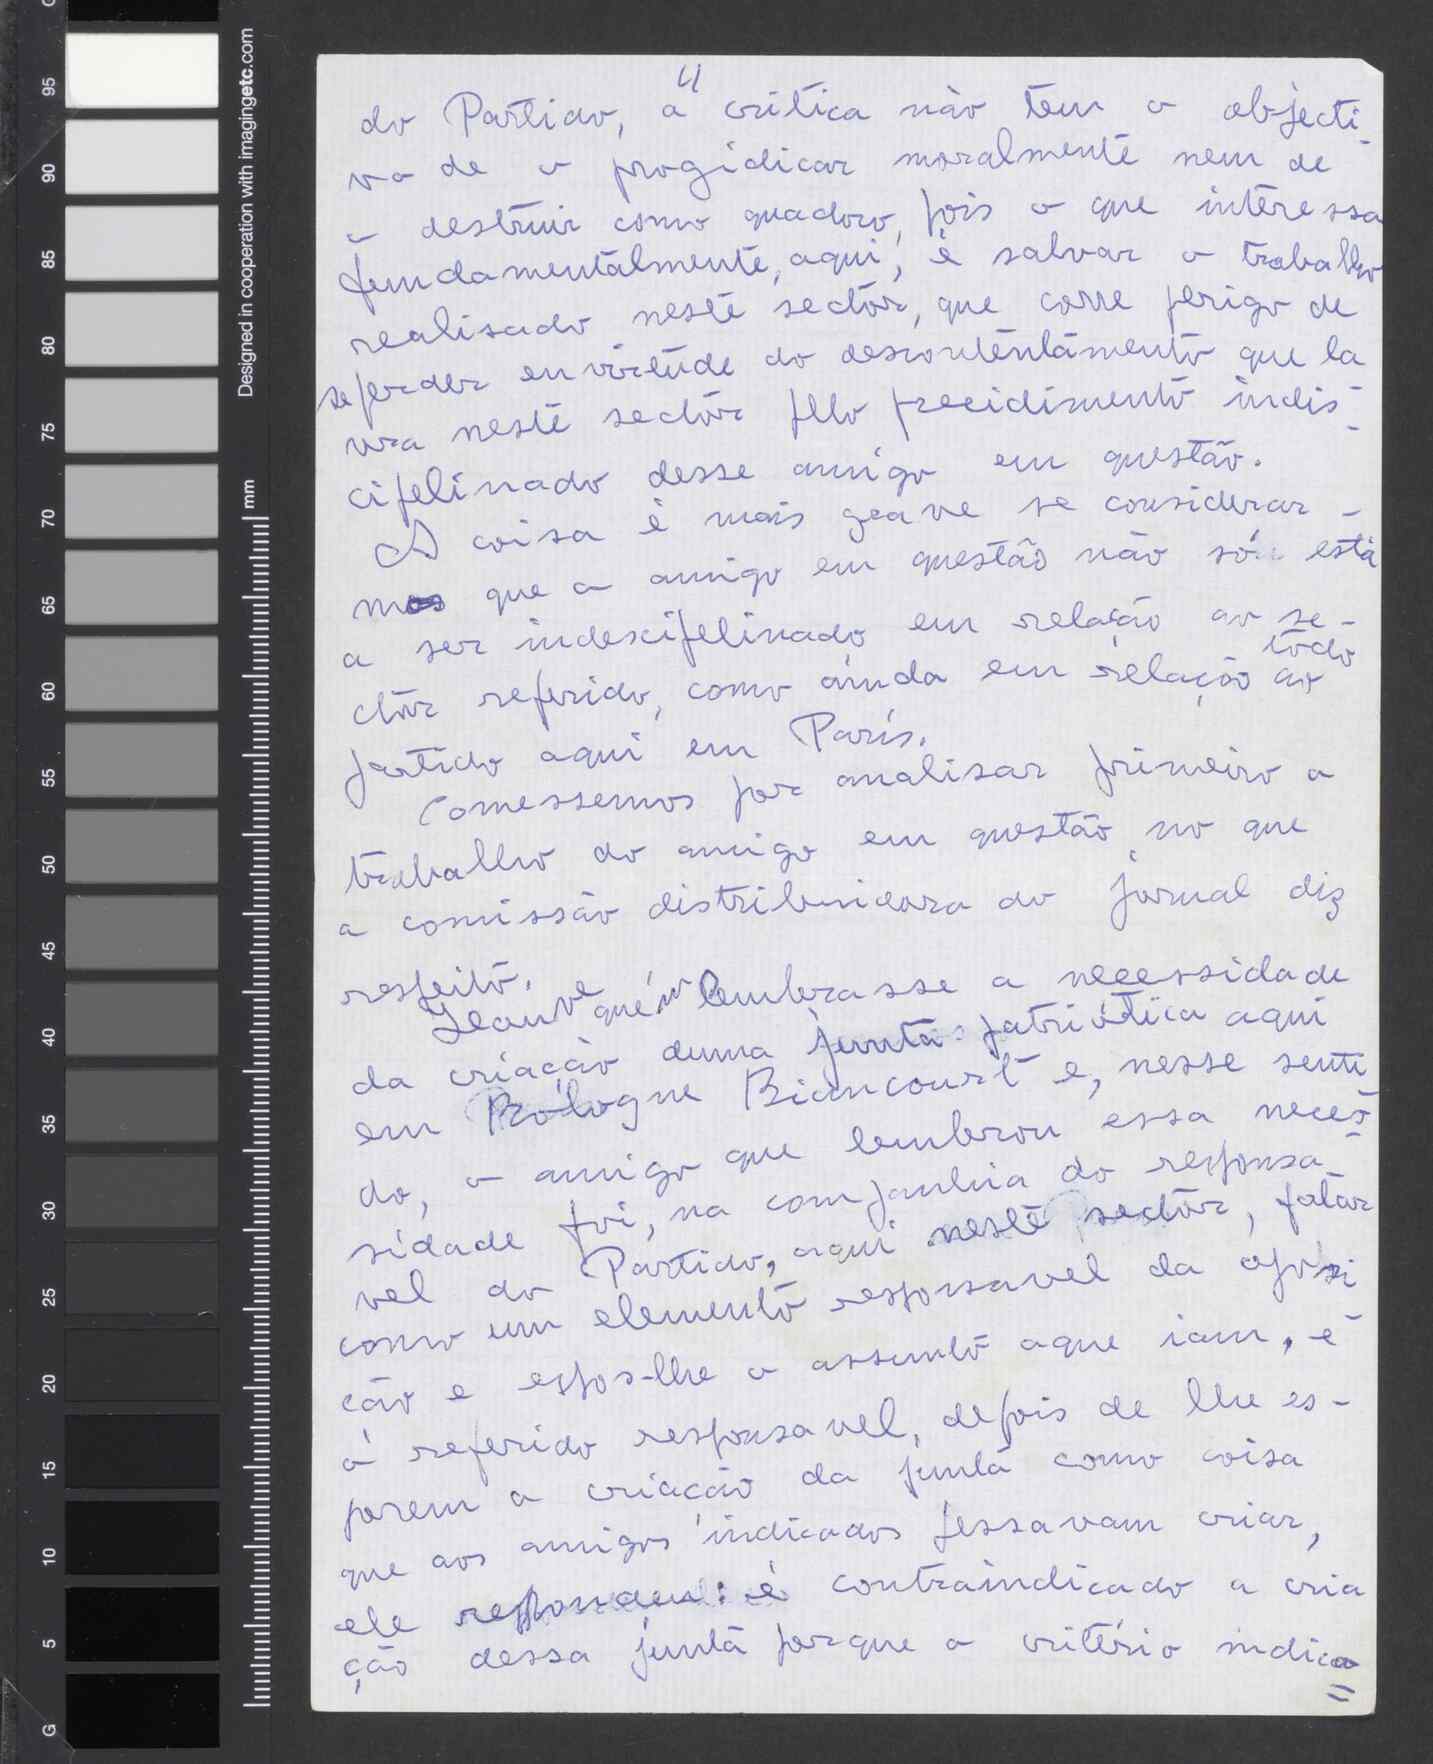 4
do Partido, a critica não tem o objecti-
vo de o progidicar moralmente nem de
o destruir como quadoro, pois o que interessa
fundamentalmente, aqui, é salvar o trabalho
realisado neste sector, que corre perigo de
se perder en virtude do descontentamento que la
vra neste sector pelo precidimento indis-
cipelinado desse amigo em questão.
A coisa é mais grave se considerar-
mos que o amigo em questão não só está
a ser indescipelinado em relação ao se-
ctor referido, como ainda em relação ao todo
partido aqui em Paris.
Comessemos por analisar primeiro o
trabalho do amigo em questão no que
a comissão distribuidora do jornal diz
respeito.
Houve quém lembrasse a necessidade
da criação duma junta patriótica aqui
em Bologne Biancourt e, nesse senti
do, o amigo que lembrou essa neces-
sidade foi, na companhia do responsa-
vel do Partido, aqui neste sector, falar
como um elemento responsavel da oposi
ção e espos-lhe o assunto aque iam, e
o referido responsavel, depois de lhe es-
porem a criação da junta como coisa
que aos amigos indicados pessavam criar,
ele respondeu: é contraindicado a cria
ção dessa junta porque o critério indica
=
Designed in cooperation with imagingetc.com
mm
95
90
85
80
75
70
65
60
55
50
45
40
35
30
25
20
15
10
5
G